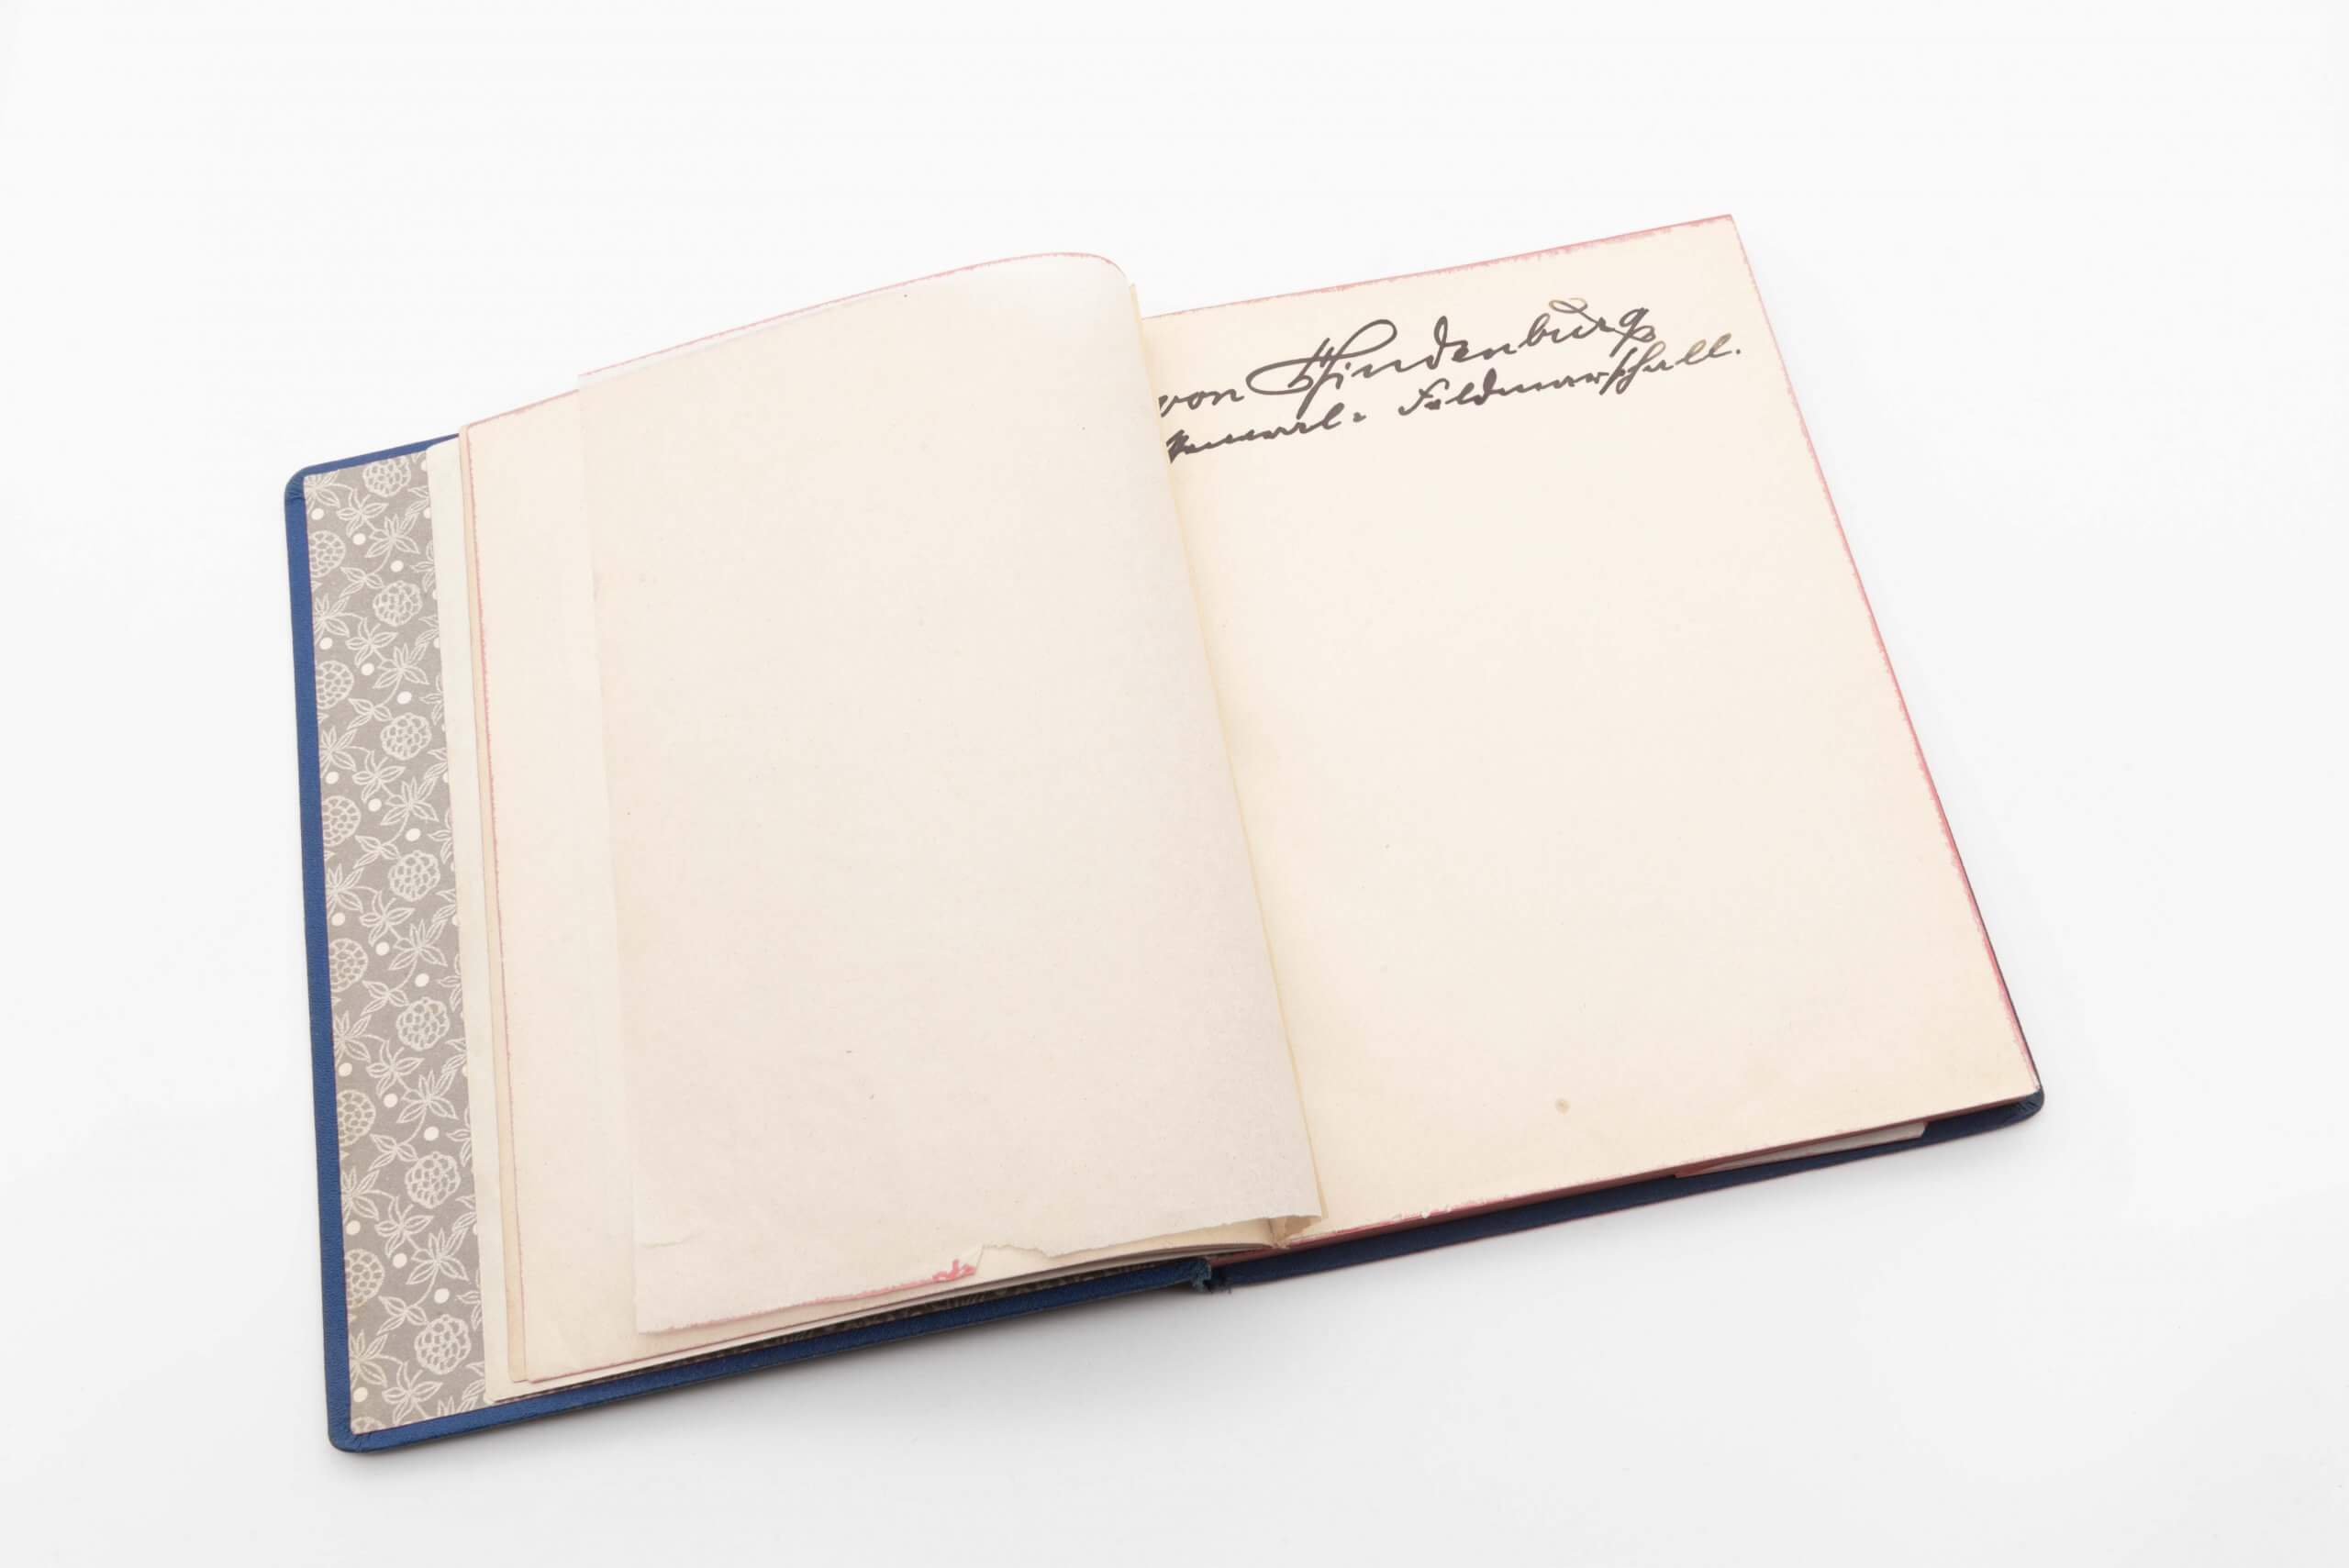 von Hindenburg
General-Feldmarschall.